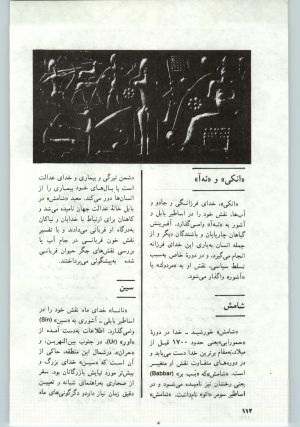 «انکی» و «ئه‌آ»
«انکی»، خدای فرزانگی و جادو و
آب‌ها، نقش خود را در اساطیر بابل و
آشور به «ئه‌آ» وامی‌گذارد. آفرینش
گیاهان چارپایان و باشندگان دیگر و از
جمله انسان به‌یاری این خدای فرزانه
انجام می‌گیرد، و در دورهٔ خاص به‌سبب
تسلط سیاسی، نقش او به «مردوك» یا
«آشور» واگذار می‌شود.
شامش
«شامش» خورشید ـ خدا در دورهٔ
«حمورابی»یعنی حدود ۱۷۰۰ قبل از
میلاد،به‌مقام برترین خدا دست می‌یابد و
در اساطیر بابل نقش متفاوت و متغیر
است. «شامش»که «بب بر» (Babbar)
یعنی رخشان نیز نامیده می‌شود و در
اساطیر سومر «اوتو» نام‌داشت. «شامش»
دشمن تیرگی و بیماری و خدای عدالت
است با بال‌های خود بیماری را از
انسان‌ها دور می‌کند. معبد «شامش» در
بابل خانهٔ عدالت جهان نامیده می‌شد و
کاهنان برای ارتباط با خدایان و نیاکان
به‌درگاه او قربانی می‌دادند و با تفسیر
نقش خون قربانی در جام آب یا
بررسی نقش‌های جگر حیوان قربانی
شده به‌پیشگوئی می‌پرداختند.
سین
«نانا» خدای ماه نقش خود را در
اساطیر بابلی ـ آشوری به «سین» (Sin)
وامی‌گذارد. اطلاعات به‌دست آمده از
«اور» (Ur)، در جنوب بین‌النهرین، و
«حران»، درشمال این منطقه، حاکی از
آن است که «سین» خدای بزرگ و
مورد نیایش بازرگانان بود. سفر
از صحاری به‌راهنمای شبانه و تعیین
دقیق زمان نیاز دارد و دگرگونی‌های ماه
۱۱۲